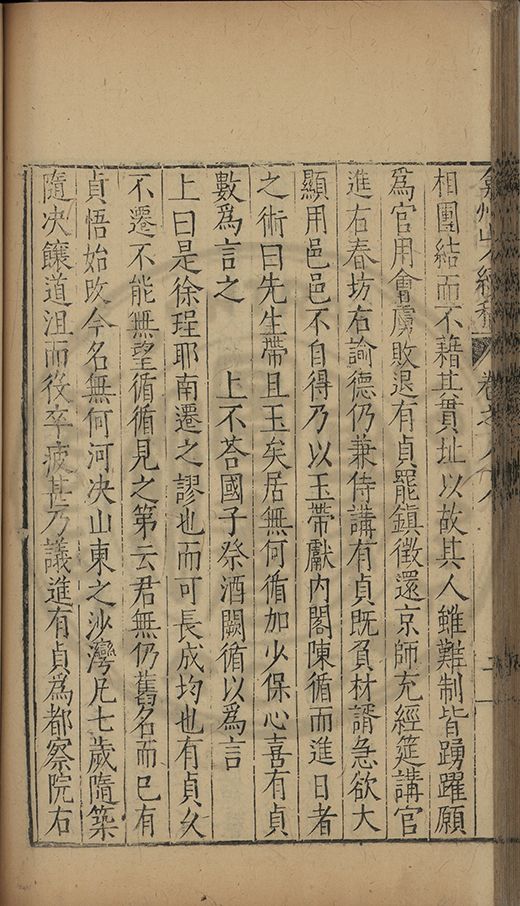 弇州山人續稿 卷之八八
相團結而不藉其貫址以故其人雖難制皆踴躍願
為官用會虜敗退有貞罷鎮徵還京師充經筵講官
進右春坊右諭德仍兼侍講有貞既負材諝急欲大
顯用邑邑不自得乃以玉帶獻內閣陳循而進日者
之術曰先生帶且玉矣居無何循加少保心喜有貞
數為言之 上不荅國子祭酒闕循以為言
上曰是徐珵耶南遷之謬也而可長成均也有貞久
不遷不能無望循循見之第云君無仍舊名而已有
貞悟始改今名無何河決山東之沙灣凢七歲隨築
隨决饟道沮而役卒疲甚乃議進有貞為都察院右